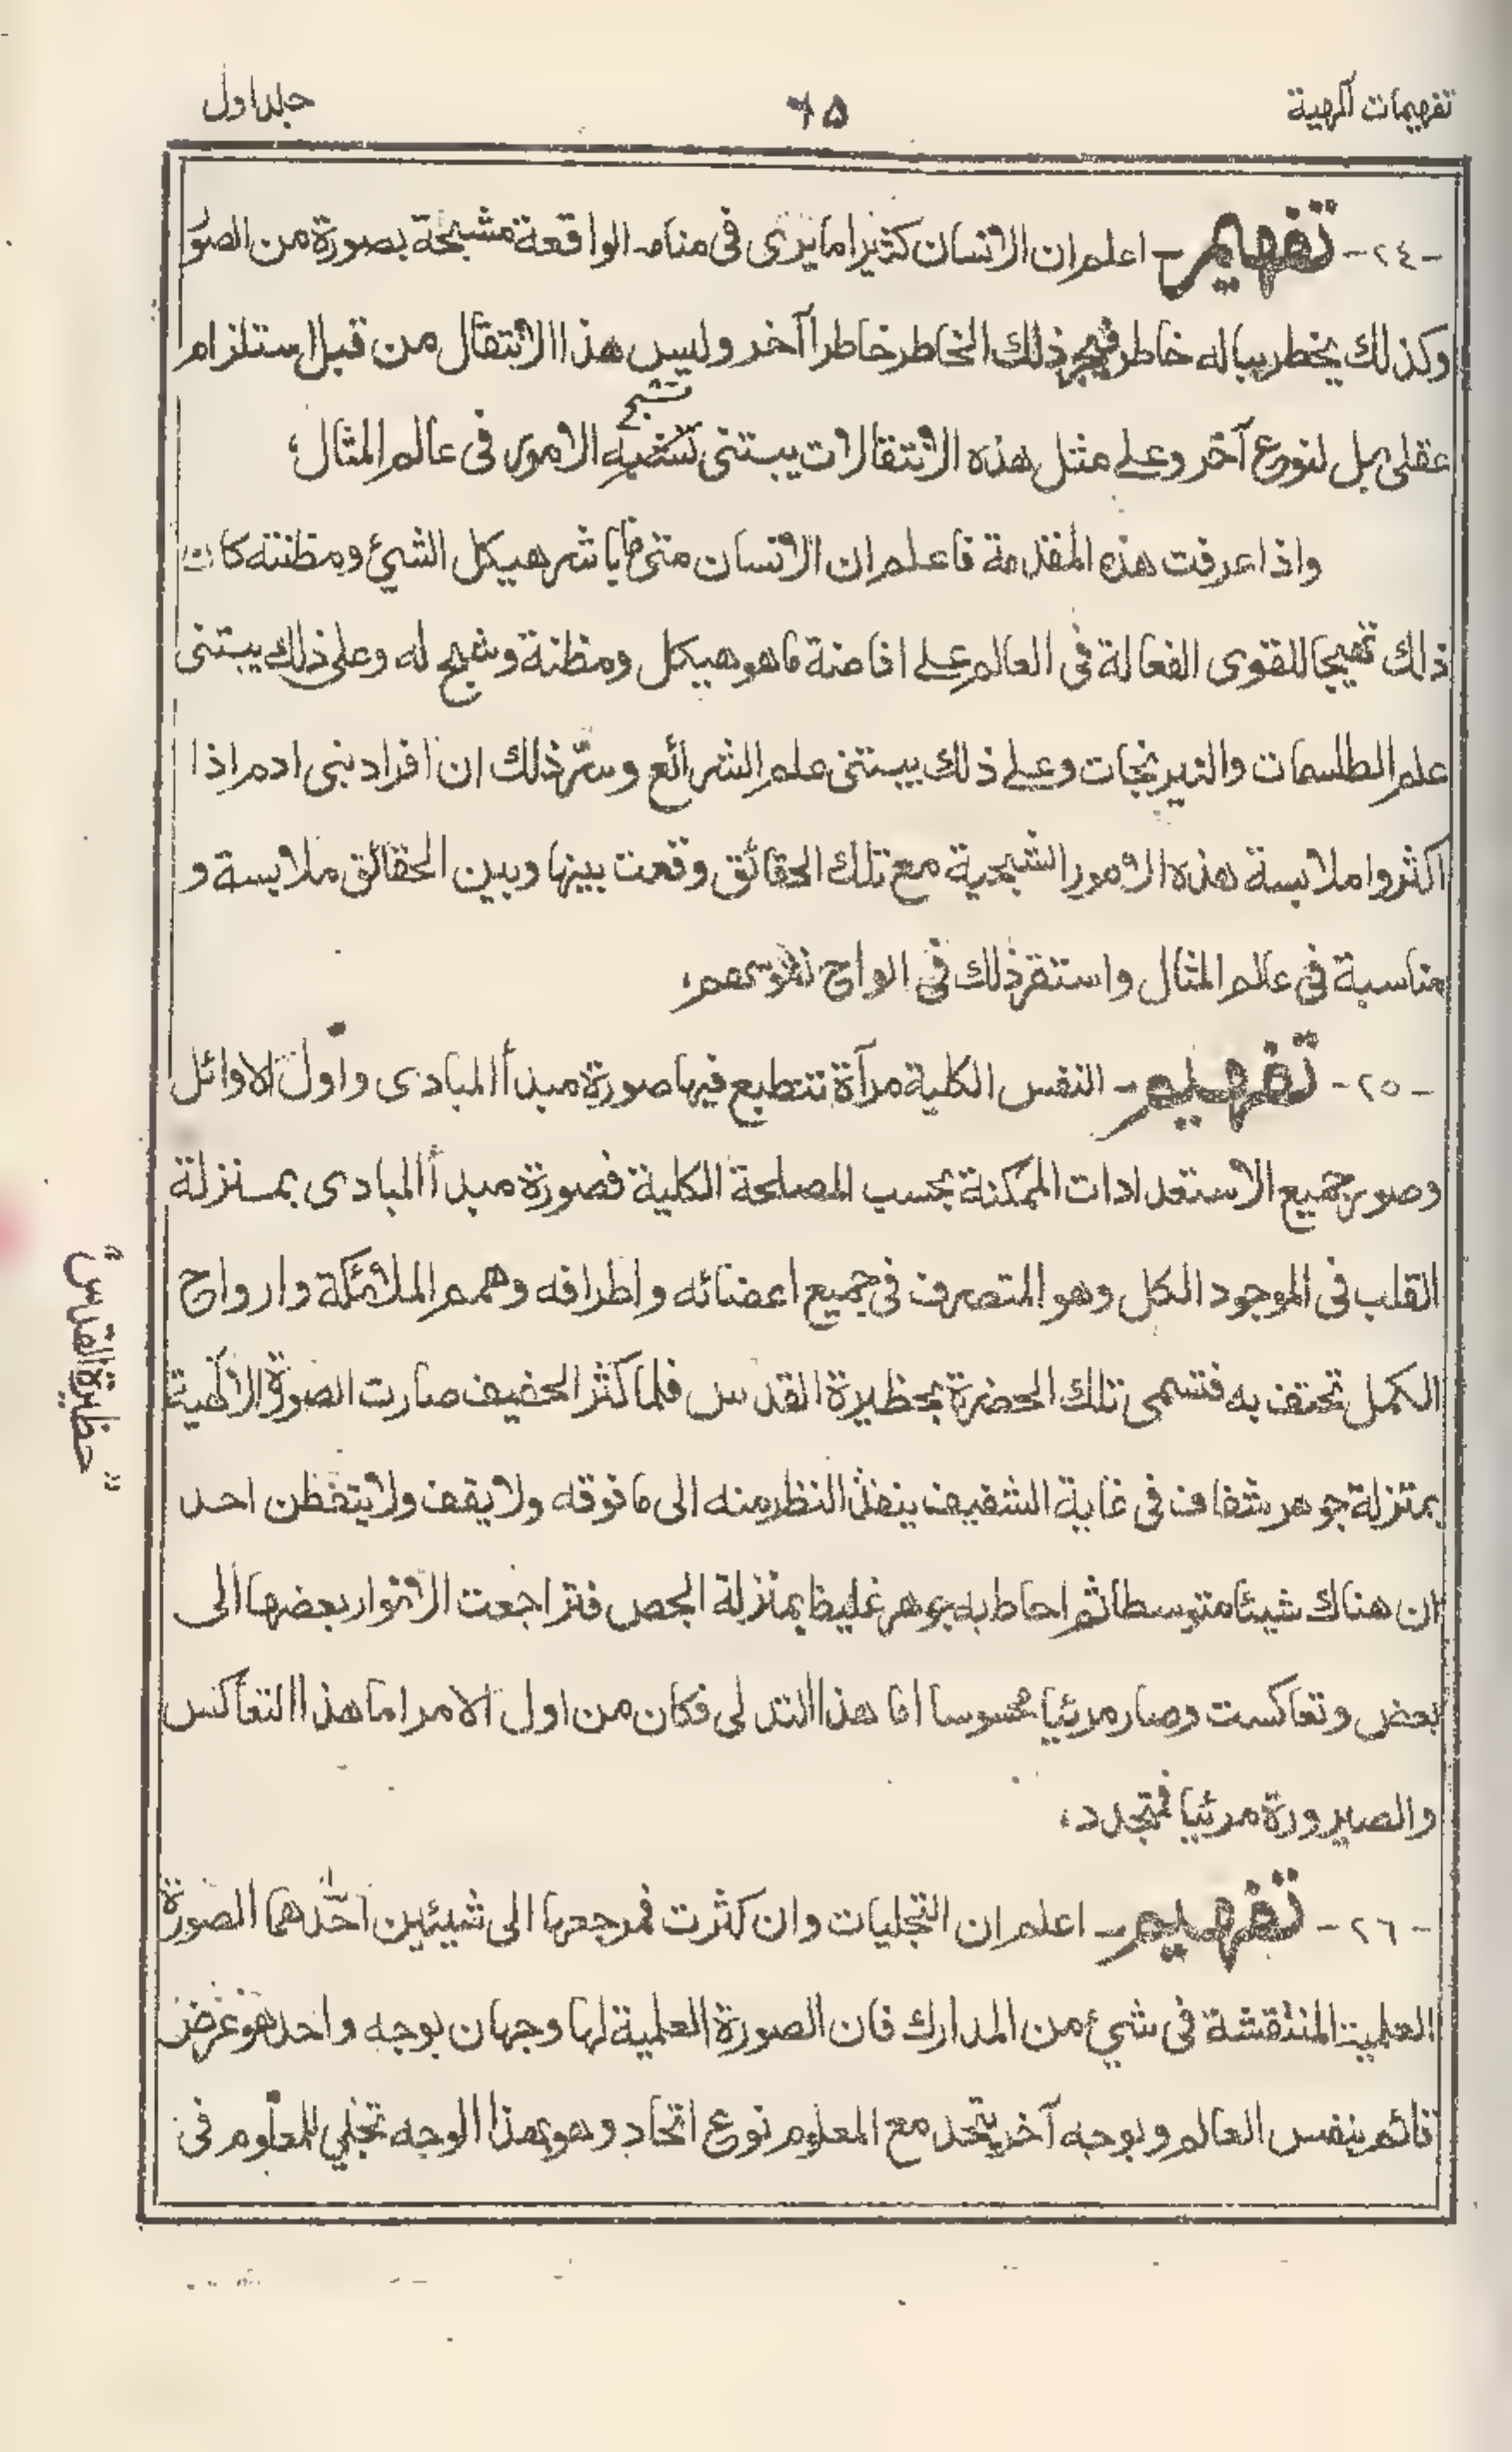 تفهيمات آلهية
٦٥
جلد اول
-٢٤- تفهيم ـ اعلم ان الانسان كثيرا ما يرى فى منامه الواقعة مشبحة بصورة من الصور
وكذلك يخطر بباله خاطر فيجر ذلك الخاطر خاطرا آخر وليس هذا الانتقال من قبل استلزام
عقلى بل لنوع آخر وعلى مثل هذه الانتقالات يبتنى تشبح الامور فى عالم المثال،
واذا عرفت هذه المقدمة فاعلم ان الانسان متى ما باشر هيكل الشئ ومظنته كان
ذلك تهيجا للقوى الفعالة فى العالم على افاضة ما هو هيكل ومظنة وشبح له وعلى ذلك يبتنى
علم الطلسمات والنيرنجات وعلى ذلك يبتنى علم الشرائع وسر ذلك ان افراد بنى ادم اذا
اكثروا ملابسة هذه الامور الشبحية مع تلك الحقائق وقعت بينها وبين الحقائق ملابسة و
مناسبة فى عالم المثال واستقر ذلك فى الواح نفوسهم،
-٢٥- تفهيم ـ النفس الكلية مرآة تنطبع فيها صورة مبدأ المبادى واول الاوائل
وصور جميع الاستعدادات الممكنة بحسب المصلحة الكلية فصورة مبدأ المبادى بمنزلة
القلب فى الموجود الكل وهو المتصرف فى جميع اعضائه واطرافه وهمم الملائكة وارواح
الكمل تحتف به فتسمى تلك الحضرة بحظيرة القدس فلما كثر الحفيف صارت الصورة الالهية
بمنزلة جوهر شفاف فى غاية الشفيف ينفذ النظر منه الى ما فوقه ولا يقف ولا يتفطن احد
ان هناك شيئا متوسطا ثم احاط به جوهر غليظ بمنزلة الجص فتراجعت الانوار بعضها الى
بعض وتعاكست وصار مرئيا محسوسا اما هذا التدلى فكان من اول الامر اما هذا التعاكس
والصيرورة مرئيا فمتجدد،
-٢٦- تفهيم ـ اعلم ان التجليات وان كثرت فمرجعها الى شيئين احدهما الصورة
العلمية المنتقشة فى شئ من المدارك فان الصورة العلمية لها وجهان بوجه واحد هو عرض
قائم بنفس العالم وبوجه آخر يتحد مع المعلوم نوع اتحاد وهو بهذا الوجه تجلي للمعلوم فى
"حظيرة القدس"